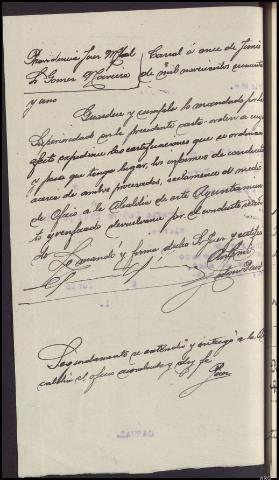 Providencia Juez Mpal Carral á once de Junio
Sr Gomez Naveira de mil novecientos cuarenta
y uno
Guardese y cumplase lo mandado por la
Superioridad en la precedente carta-orden a cuyo
efecto expidanse las certificaciones que se ordenan
y para que tenga lugar los informes de conducta
acerca de ambos procesados, reclamense de medio
de Oficio a la Alcaldia de este Ayuntamien
to y verificado devuelvase por el conducto
do. Lo mandó y firma dicho Sr Juez y certifico
Seguidamente se extendió y entregó a la Al
caldia el oficio acordado y doy fe